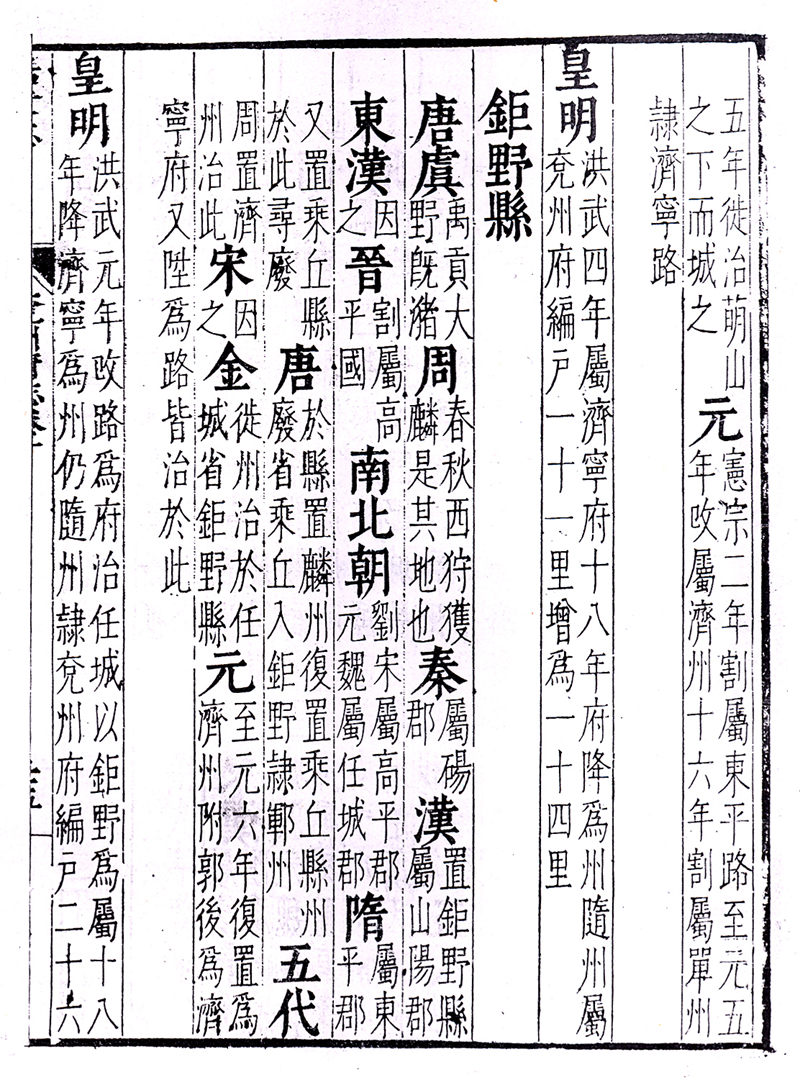 五年徙治萌山之下而城之元憲宗二年割屬東平路至元五年改屬濟州十六年割屬單州
隸濟寧路
皇明洪武四年屬濟寧府十八年府降爲州隨州屬兗州府編戶一十一里增爲一十四里
鉅野縣
唐虞禹貢大野旣瀦周春秋西狩獲麟是其地也秦屬碭郡漢置鉅野縣屬山陽郡
東漢因之晉割屬高平國南北朝劉宋屬高平郡元魏屬任城郡隋屬東平郡
又置乘丘縣於此尋廢唐於縣置麟州復置乘丘縣州廢省乘丘入鉅野隸鄆州五代
周置濟州治此宋因之金徙州治於任城省鉅野縣元至元六年復置爲濟州附郭後爲濟
寧府又陞爲路皆治於此
皇明洪武元年改路爲府治任城以鉅野爲屬十八年降濟寧爲州仍隨州隸兗州府編戶二十六